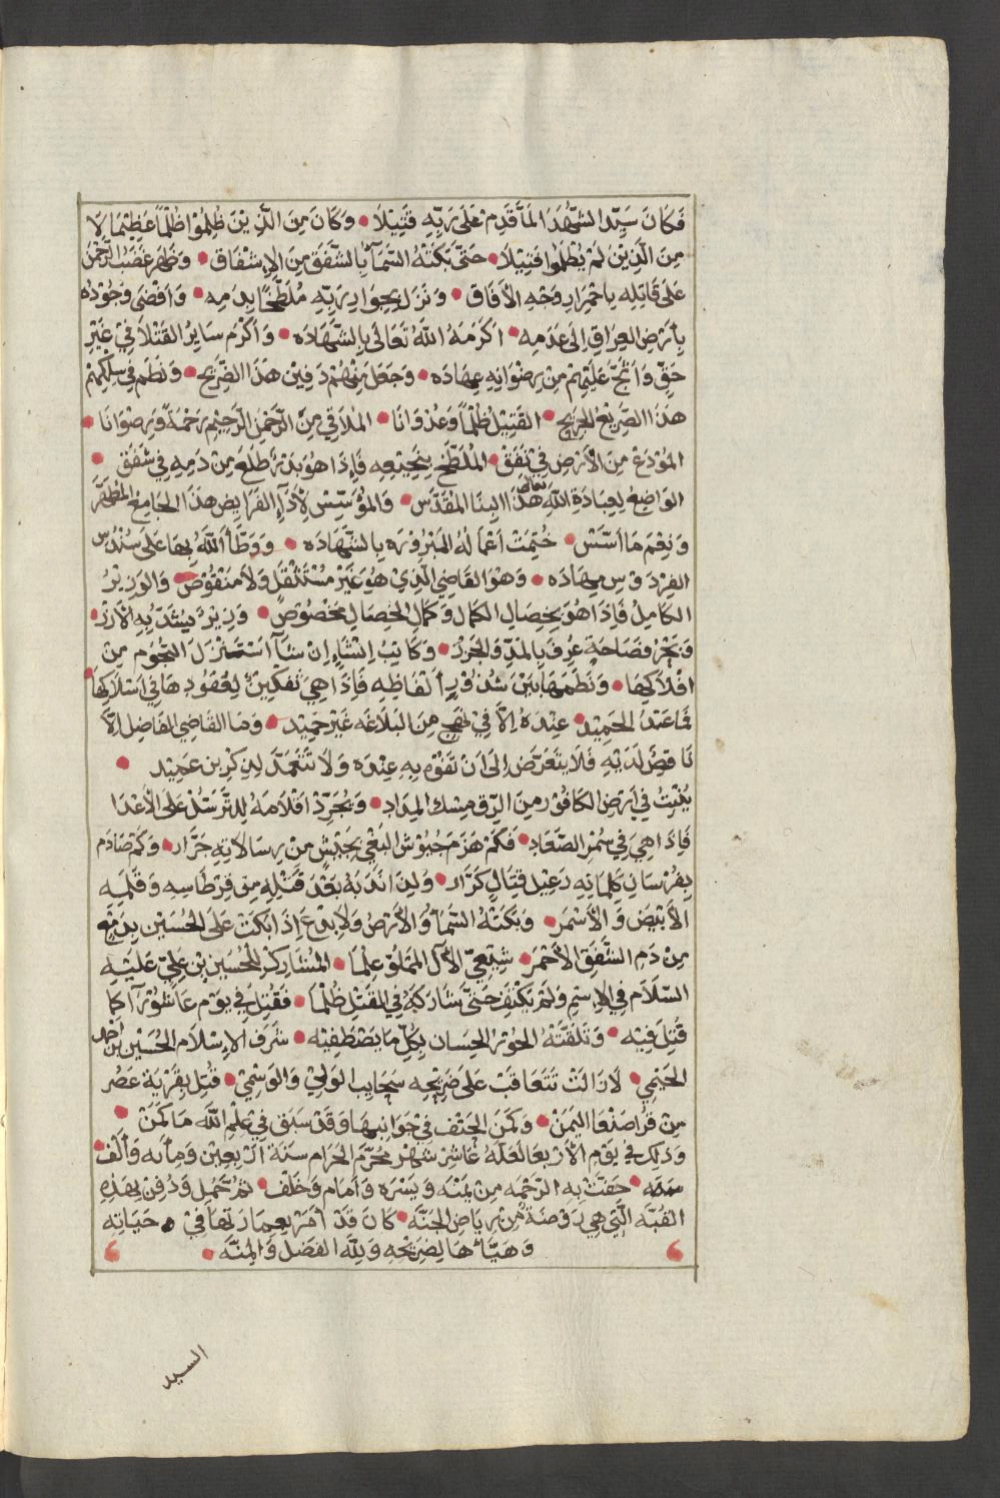 فَكَانَ سَيِّدَ الشُّهَدَا لَمَّا قَدِمَ عَلَى رَبِّهِ قَتِيْلًا • وَكَانَ مِنَ الَّذِيْنَ ظُلِمُوْا ظُلْمًا عَظِيْمًا لَا
مِنَ الَّذِيْنَ لَمْ يُظْلَمُوا فَتِيْلًا • حَتَّى بَكَتْهُ السَّمَآءُ بِالشَّفَقِ مِنَ الْاِشْفَاق • وَظَهَرَ غَضَبُ الرَّحْمٰنِ
عَلَى قَاتِلِهِ بِاحْمِرَارِ وَجْهِ الْآفَاق • وَنَزَلَ بِجِوَارِ رَبِّهِ مُلَطَّخًا بِدَمِهِ • وَاَفْضَى وُجُوْدُهُ
بِاَرْضِ العِرَاقِ اِلَى عَدَمِهِ • اَكْرَمَهُ اللهُ تَعَالَى بِالشَّهَادَه • وَاَكْرَمَ سَايِرَ القَتْلَا فِيْ غَيْرِ
حَقٍّ وَاَثَجَّ عَلَيْهِمْ مِنْ رِضْوَانِهِ عِهَادَه • وَجَعَلَ مِنْهُمْ دَفِيْنَ هَذَا الضَّرِيْح • وَنَظَمَ فِيْ سِلْكِهِمْ
هَذَا الصَّرِيْعَ الجَرِيْح • القَتِيْلَ ظُلْمًا وَعُدْوَانًا • المُلَاقِيْ مِنَ الرَّحْمٰنِ الرَّحِيْمِ رَحْمَةً وَرِضْوَانًا •
المُوْدَعَ مِنَ الْاَرْضِ فِيْ نَفَقْ • المُلَطَّخَ بِنَجِيْعِهِ فَاِذَا هُوَ بَدْرٌ طَلَعَ مِنْ دَمِهِ فِيْ شَفَقْ •
الوَاضِعَ لِعِبَادَةِ اللهِ تعالى هَذَا البِنَا المُقَدَّس • وَالمُؤَسِّسَ لِاَدَآءِ الفَرَايِضِ هَذَا الجَامِعَ المُطَهَّرَ
وَنِعْمَ مَا اَسَّسَ • خُتِمَتْ اَعْمَالُهُ المَبْرُوْرَه بِالشَّهَادَه • وَوَطَّأَ اللهُ بِهَا عَلَى سُنْدُسِ
الفِرْدَوْسِ مِهَادَه • وَهُوَ القَاضِي الَّذِيْ هُوَ غَيْرُ مُسْتَثْقَلٍ وَلَا مَنْقُوْصْ • وَالوَزِيْرُ
الكَامِلُ فَاِذَا هُوَ بِخِصَالِ الكَمَال وَكَمَالِ الخِصَالِ مَخْصُوْصْ • وَزِيْرٌ يَشْتَدُّ بِهِ الْاَزْرُ •
وَبَحْرُ فَصَاحَةٍ عُرِفَ بِالمَدِّ وَالجَزْر • وَكَاتِبُ اِنْشَاءٍ اِنْ شَآءَ اسْتَنْزَلَ النُّجُوْمَ مِنْ
اَفْلَاكِهَا • وَنَظَمَهَا بَيْنَ شُذُوْرِ اَلْفَاظِهِ فَاِذَا هِيَ تَفْكِيْنٌ لِعُقُوْدِهَا فِي اَسْلَاكِهَا •
فَمَا عَبْدُ الحَمِيْدِ عِنْدَهُ اِلَّا فِيْ نَهْجٍ مِنَ البَلَاغَه غَيْر حَمِيْد • وَمَا القَاضِي الفَاضِلُ اِلَّا
نَاقِصٌ لَدَيْهِ فَلَا يَتَعَرَّض اِلَى اَنْ تَفُوْهَ بِهِ عِنْدَه وَلَا تَتَعَمَّدْ لِذِكْرِ ابن عَمِيد •
يُنْبِتُ فِيْ اَرْضِ الكَافُوْر مِنَ الرِّقِ مِسْكَ المِدَاد • وَيُجَرِّدُ اَقْلَامَهُ لِلتَّرَسُّلِ عَلَى الْاَعْدَا
فَاِذَا هِيَ فِيْ سُمْرِ الصِّعَاد • فَكَمْ هَزَمَ جُيُوْشَ البَغْيِ بِجَيْشٍ مِنْ رِسَالَاتِهِ جَرَّار • وَكَمْ صَادَمَ
بِفُرْسَانِ كَلِمَاتِهِ رَعِيْلَ قِتَالٍ كَرَّار • وَلَئِنْ اَنْدَبَهُ بَعْدَ قَتْلِهِ مِنْ قِرْطَاسِهِ وَقَلَمِهِ
الْاَبْيَضُ وَ الْاَسْمَرُ • وَبَكَتْهُ السَّمَاءُ وَالْاَرْضُ وَلَا بِدْعَ اِذَا بَكَتْ عَلَى الحُسَيْنِ بِدَمْعٍ
مِنْ دَمِ الشَّفَقِ الْاَحْمَر • شِيْعِيُّ الْآلِ المَمْلُوِّ عِلْمًا • المُشَارِكُ لِلْحُسَيْنِ بْنِ عَلِيٍّ عَلَيْهِ
السَّلَامُ فِي الْاِسْمِ وَلَمْ يَكْتَفِ حَتَّى شَارَكَهُ فِي المَقْتَلِ ظُلْمًا • فَقُتِلَ فِيْ يَوْمِ عَاشُوْرَآ كَمَا
قُتِلَ فِيْه • وَتَلَقَّتْهُ الحُوْرُ الحِسَان بِكُلِّ مَا يَصْطَفِيْه • شَرَفُ الْاِسْلَام الحُسَيْن بْن اَحْمَد
الحَيْمِي • لَا زَالَتْ تَتَعَاقَبُ عَلَى ضَرِيْحِه سَحَايِب الوَلِيْ وَالوَسْمِيْ • قُتِلَ بِقَرْيَة عَصْر
مِنْ قُرَا صَنْعَا اليَمَنْ • وَكَمَنَ الحَتْف فِيْ جَوَانِبِهَا وَقَدْ سَبَقَ فِيْ عِلْمِ اللهِ مَا كَمَنْ •
وَذَلِك فِيْ يَوْمِ الْاَرْبَعَا لَعَلَّهُ عَاشِرُ شَهْرِ مُحَرَّمِ الحَرَام سَنَة اَرْبَعِيْنَ وَمِائَه وَاَلْف •
حَفَّتْ بِهِ الرَّحْمَه مِنْ يَمْنَه وَيَسْرَه وَاَمَام وَخَلْف • ثُمَّ حُمِلَ وَدُفِنَ بِهَذِهِ
القُبَّه الَّتِيْ هِيَ رَوْضَةٌ مِنْ رِيَاضِ الجَنَّه • كَانَ قَدْ اَمَرَ بِعِمَارَتِهَا فِيْ • حَيَاتِهِ
وَهَيَّأَهَا لِضَرِيْحِهِ وَلِلَّهِ الفَضْلُ وَالمِنَّه •
السيد